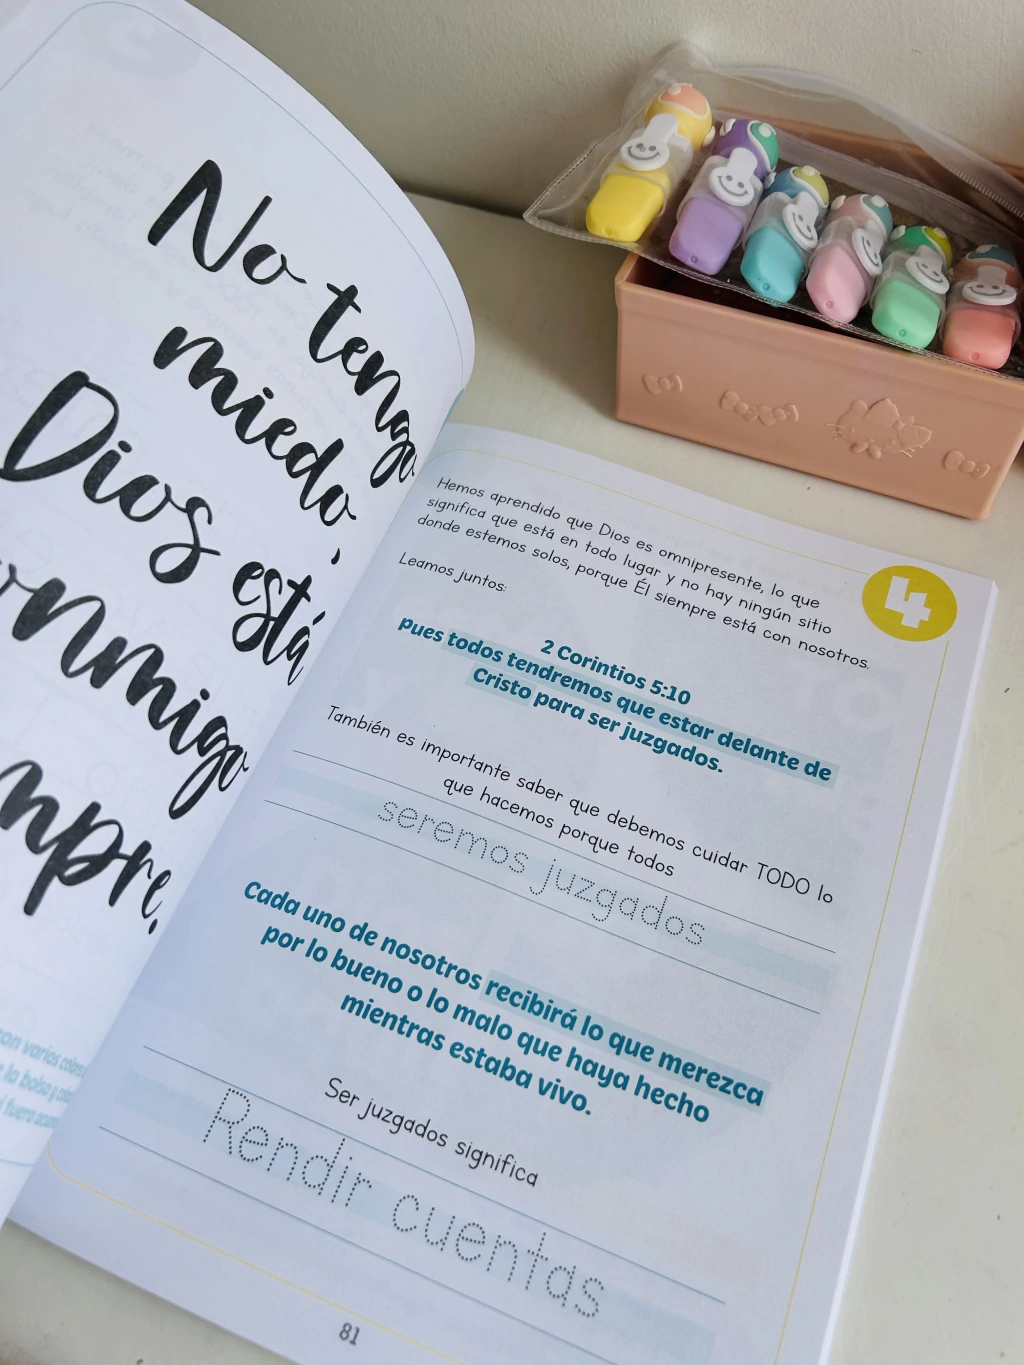 No tengo
miedo,
Dios está
mpre,
con varios colores
la bolsa y
Hemos aprendido que Dios es omnipresente, lo que
significa que está en todo lugar y no hay ningún sitio
donde estemos solos, porque Él siempre está con nosotros.
4
Leamos juntos:
2 Corintios 5:10
pues todos tendremos que estar delante de
Cristo para ser juzgados.
También es importante saber que debemos cuidar TODO lo
que hacemos porque todos
seremos juzgados
Cada uno de nosotros recibirá lo que merezca
por lo bueno o lo malo que haya hecho
mientras estaba vivo.
Ser juzgados significa
Rendir cuentas
81